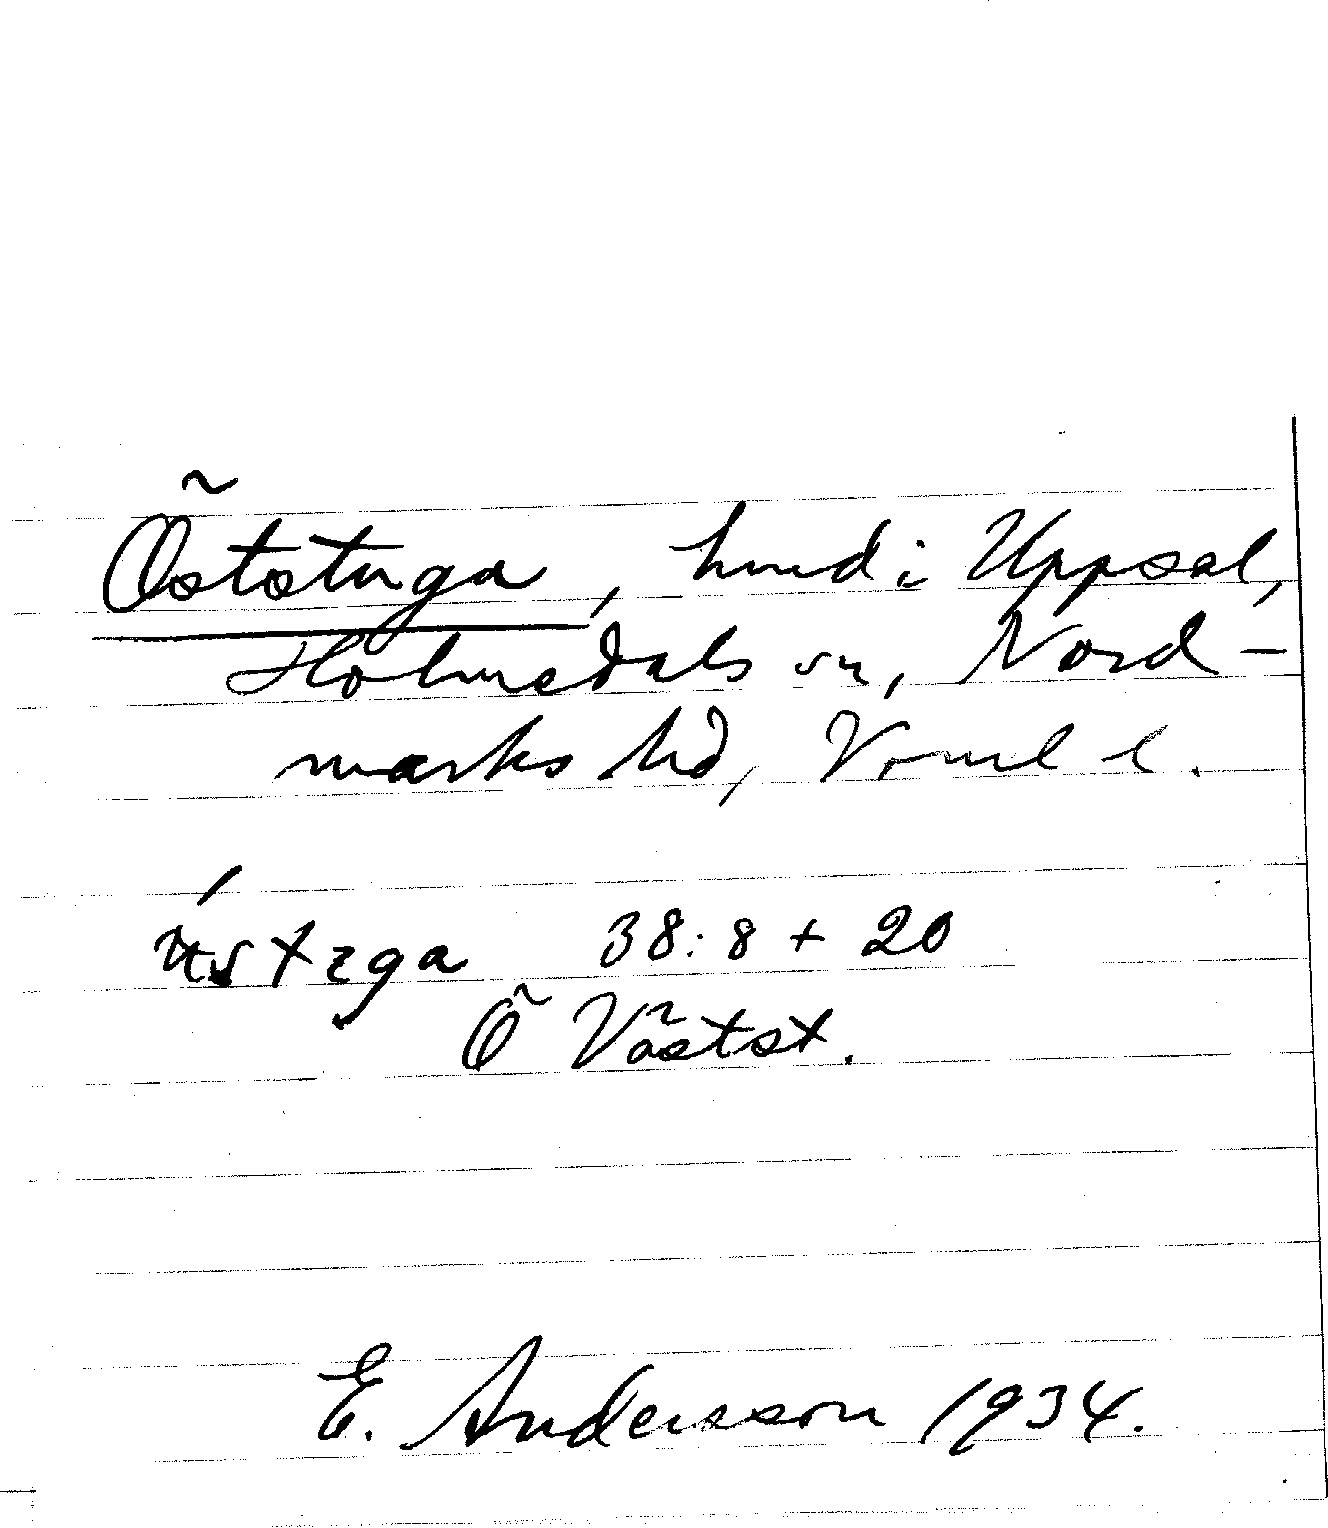 Õststuga, hmd i Uppsal,
Holmedals sn, Nord-
marks hd, Vrml l.
38:8 + 20
Õ Västst.
E. Andersson 1934.